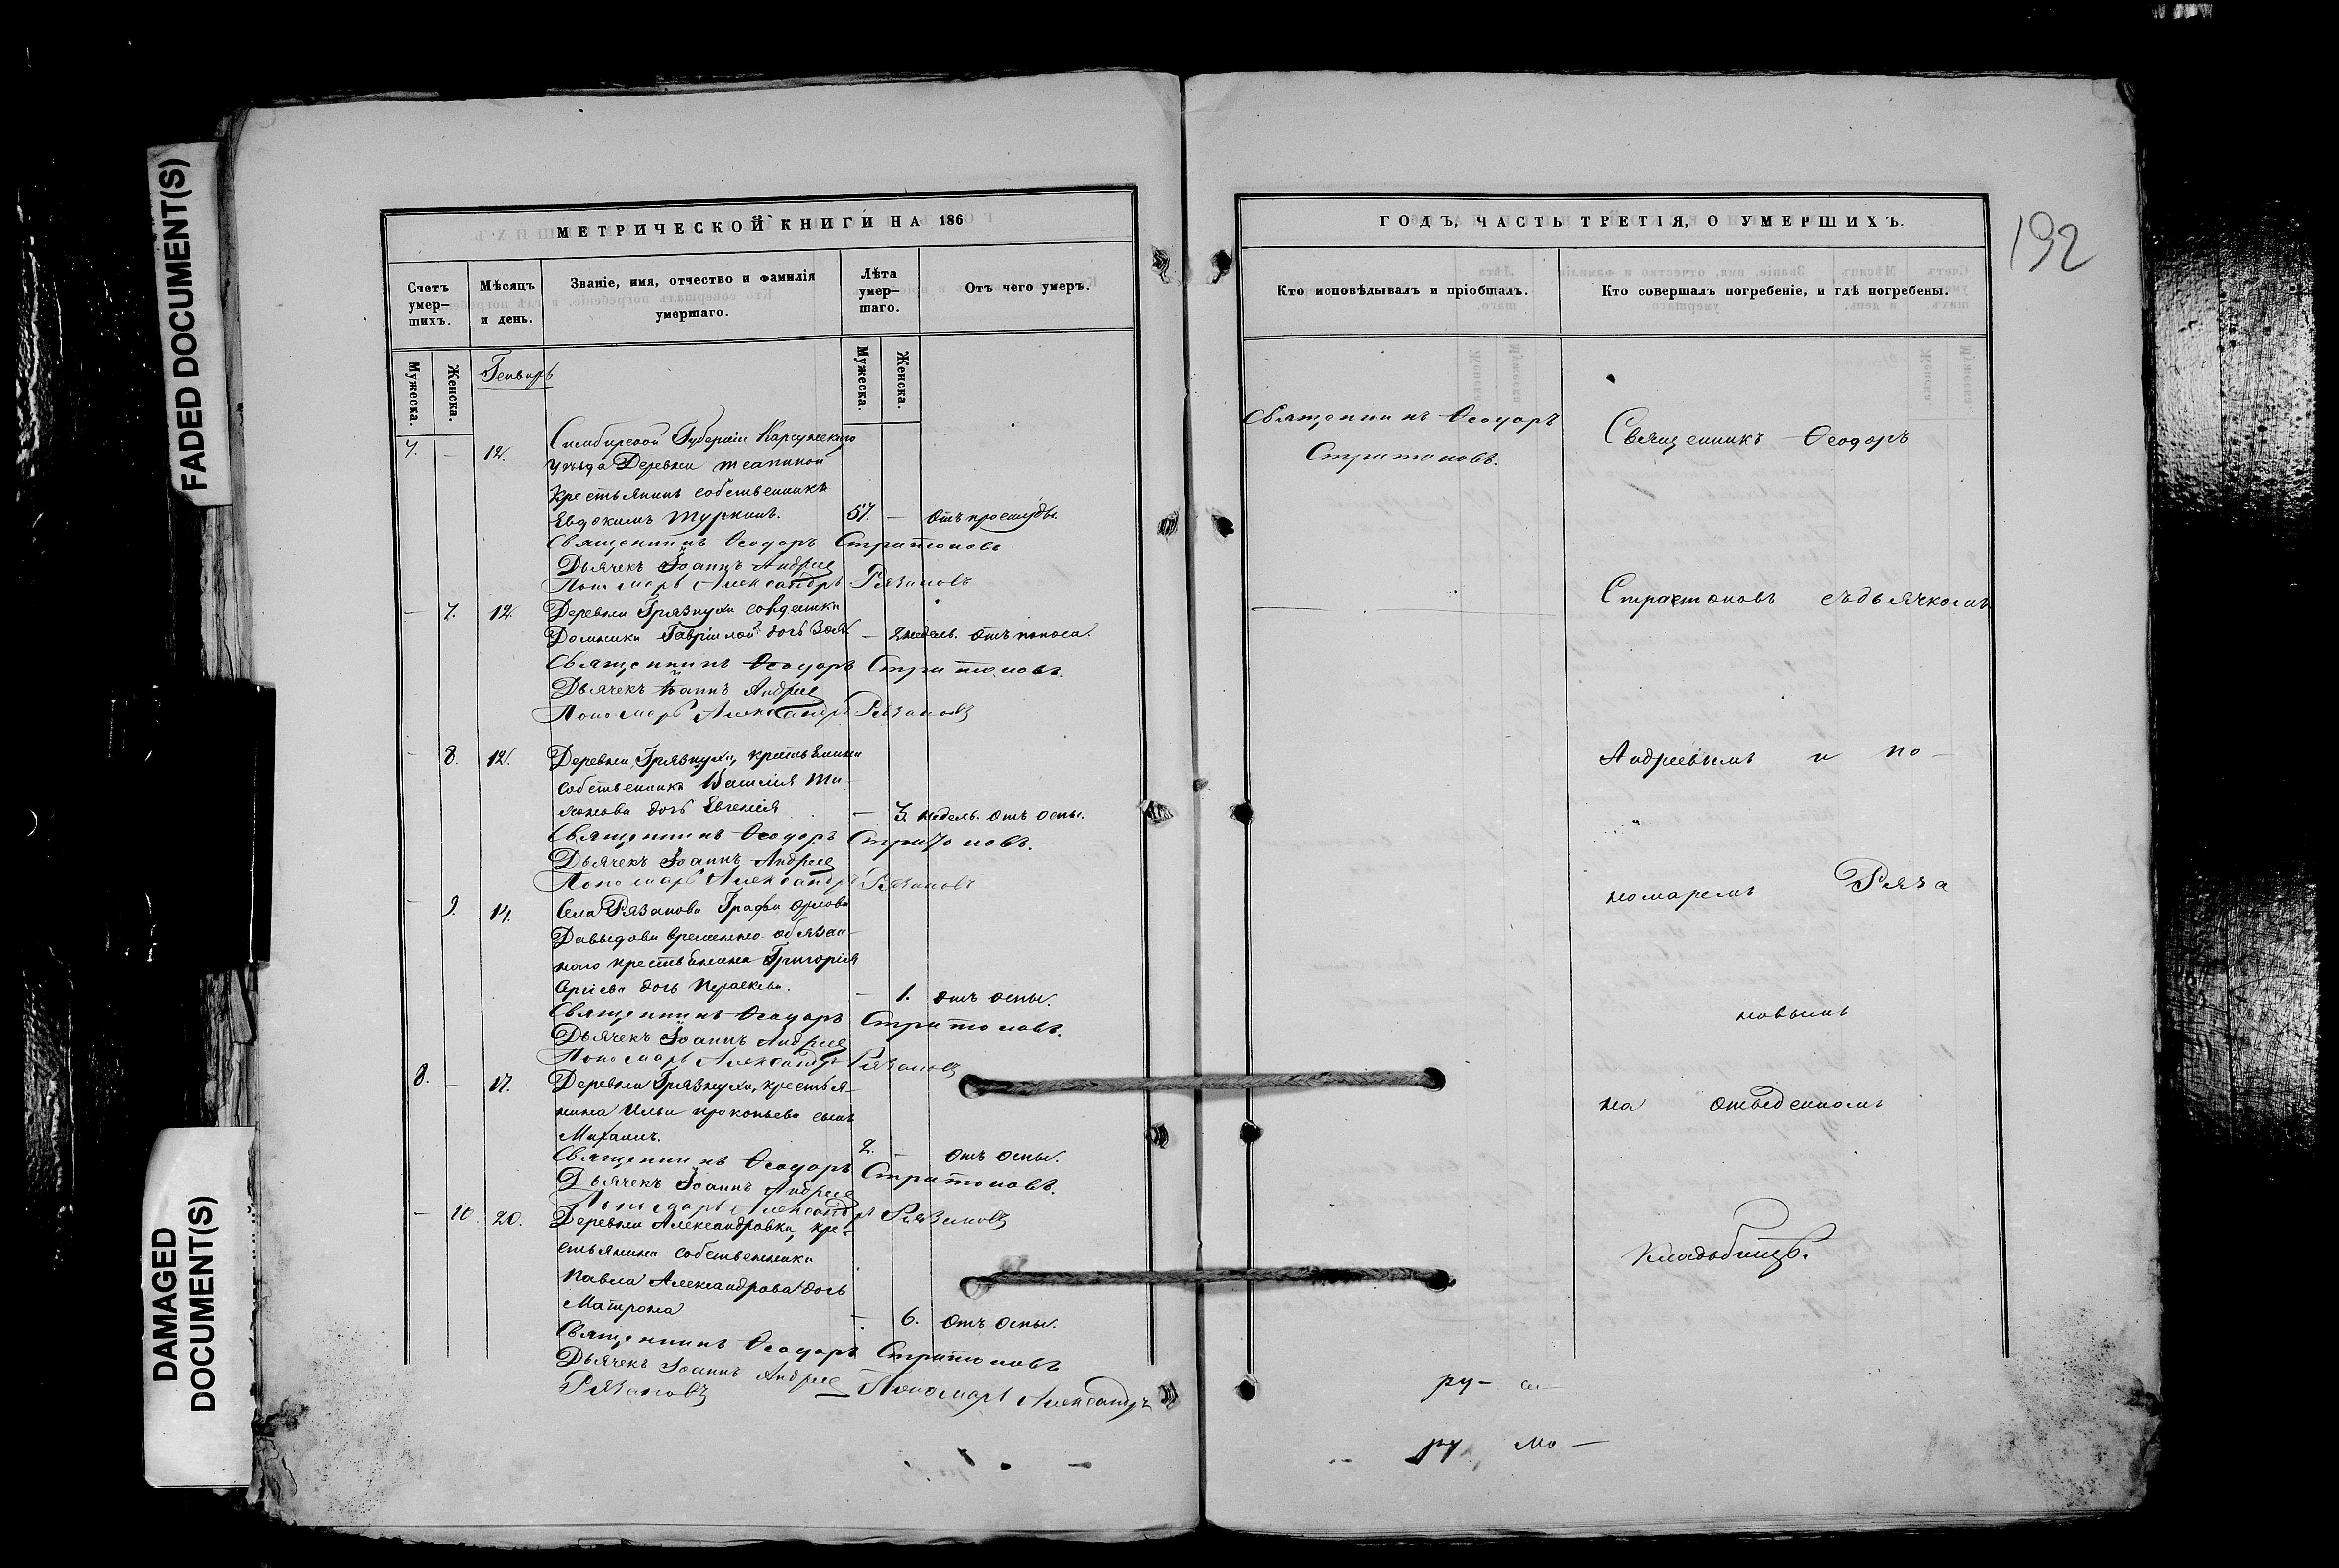 FADED DOCUMENT(S)
DAMAGED DOCUMENT(S)
МЕТРИЧЕСКОЙ КНИГИ НА 186
Счетъ умер–шихъ.
Мѣсяцъ и день.
Званіе, имя, отчество и фамилія умершаго.
Лѣта умер–шаго.
Отъ чего умеръ.
Мужеска.
Женска.
Генварь
Мужеска.
Женска.
7. – 12. Симбирской Губерніи Карсунскаго
уѣзда Деревни
Крестьянинъ собственникъ
Евдокимъ Туркинъ. 57. – Отъ простуды.
Священникъ Ѳеодоръ Стратоновъ
Дьячекъ Іоаннъ Андреев
Пономарь Александръ Рязановъ
– 7. 12. Деревни Грязнухи солдатки
Домники Гавриловой дочь – недѣль. Отъ поноса.
Священникъ Ѳеодоръ Стратоновъ.
Дьячекъ Іоаннъ Андреев
Пономарь Александръ Рязановъ
– 8. 12. Деревни Грязнухи, крестьянина
собственника Василія Ти–
хонова дочь Евгенія – 3. недѣль. отъ оспы.
Священникъ Ѳеодоръ Стратоновъ.
Дьячекъ Іоаннъ Андреев
Пономарь Александръ Рязановъ
– 9. 14. Села Рязанова Графа Орлова
Давыдова временно-обязан–
наго крестьянина Григорія
дочь Параскева. – 1. отъ оспы.
Священникъ Ѳеодоръ Стратоновъ.
Дьячекъ Іоаннъ Андреев
Пономарь Александръ Рязановъ
8. – 17. Деревни Грязнухи, крестья–
нина Ильи Прокопьева сынъ
Михаилъ. 2. – отъ оспы.
Священникъ Ѳеодоръ Стратоновъ.
Дьячекъ Іоаннъ Андреев
Пономарь Александръ Рязановъ
– 10. 20. Деревни Александровки, кре–
стьянина собственника
Павла Александрова дочь
Матрона – 6. отъ оспы.
Священникъ Ѳеодоръ Стратоновъ
Дьячекъ Іоаннъ Андреев Пономарь Александръ
Рязановъ
ГОДЪ, ЧАСТЬ ТРЕТІЯ, О УМЕРШИХЪ.
192
Кто исповѣдывалъ и пріобщалъ.
Кто совершалъ погребеніе, и гдѣ погребены.
Священникъ Ѳеодоръ
Стратоновъ.
Священникъ Ѳеодоръ
Стратоновъ съ дьячкомъ
Андреевымъ и по–
номаремъ Ряза
новымъ
на отведенномъ
кладбищѣ.
ру– са–
ру мо–